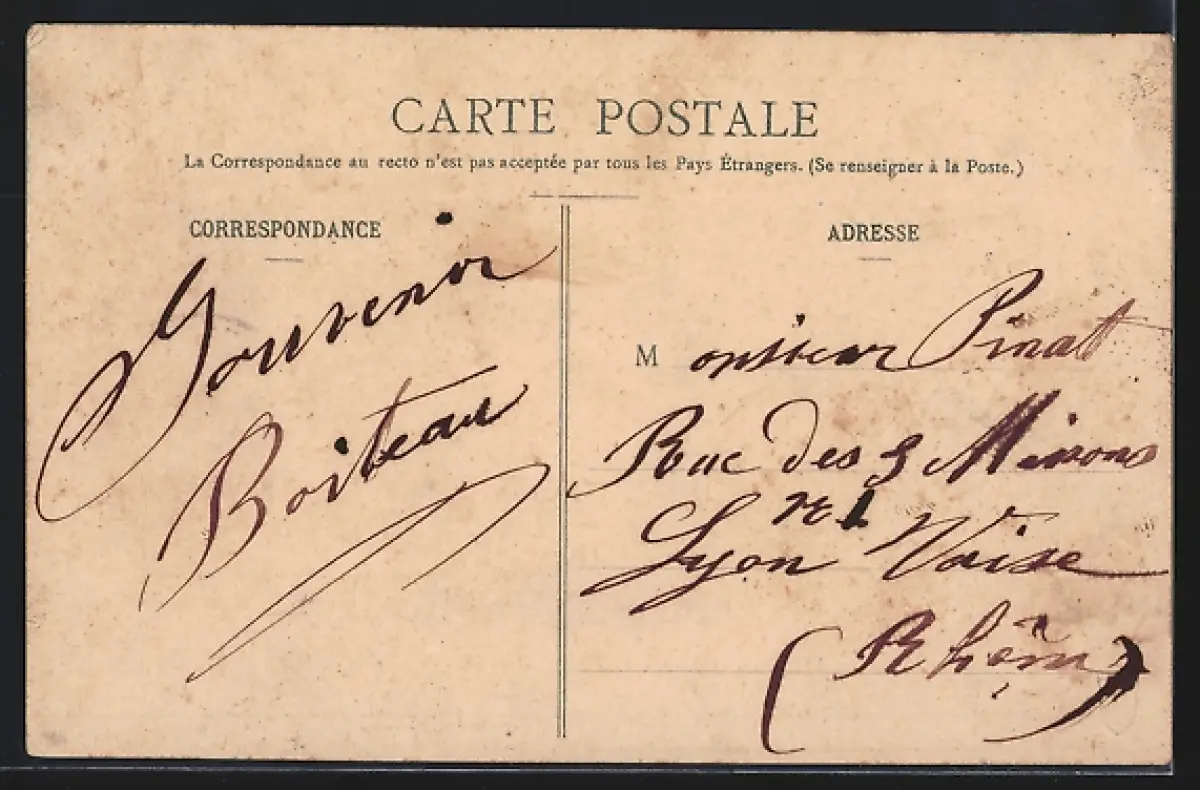 CARTE POSTALE
La Correspondance au recto n'est pas acceptée par tous les Pays Étrangers. (Se renseigner à la Poste.)
CORRESPONDANCE
Souvenir
Boiteau
ADRESSE
Monsieur Pinat
Rue des
Lyon Vaise
(Rhône)